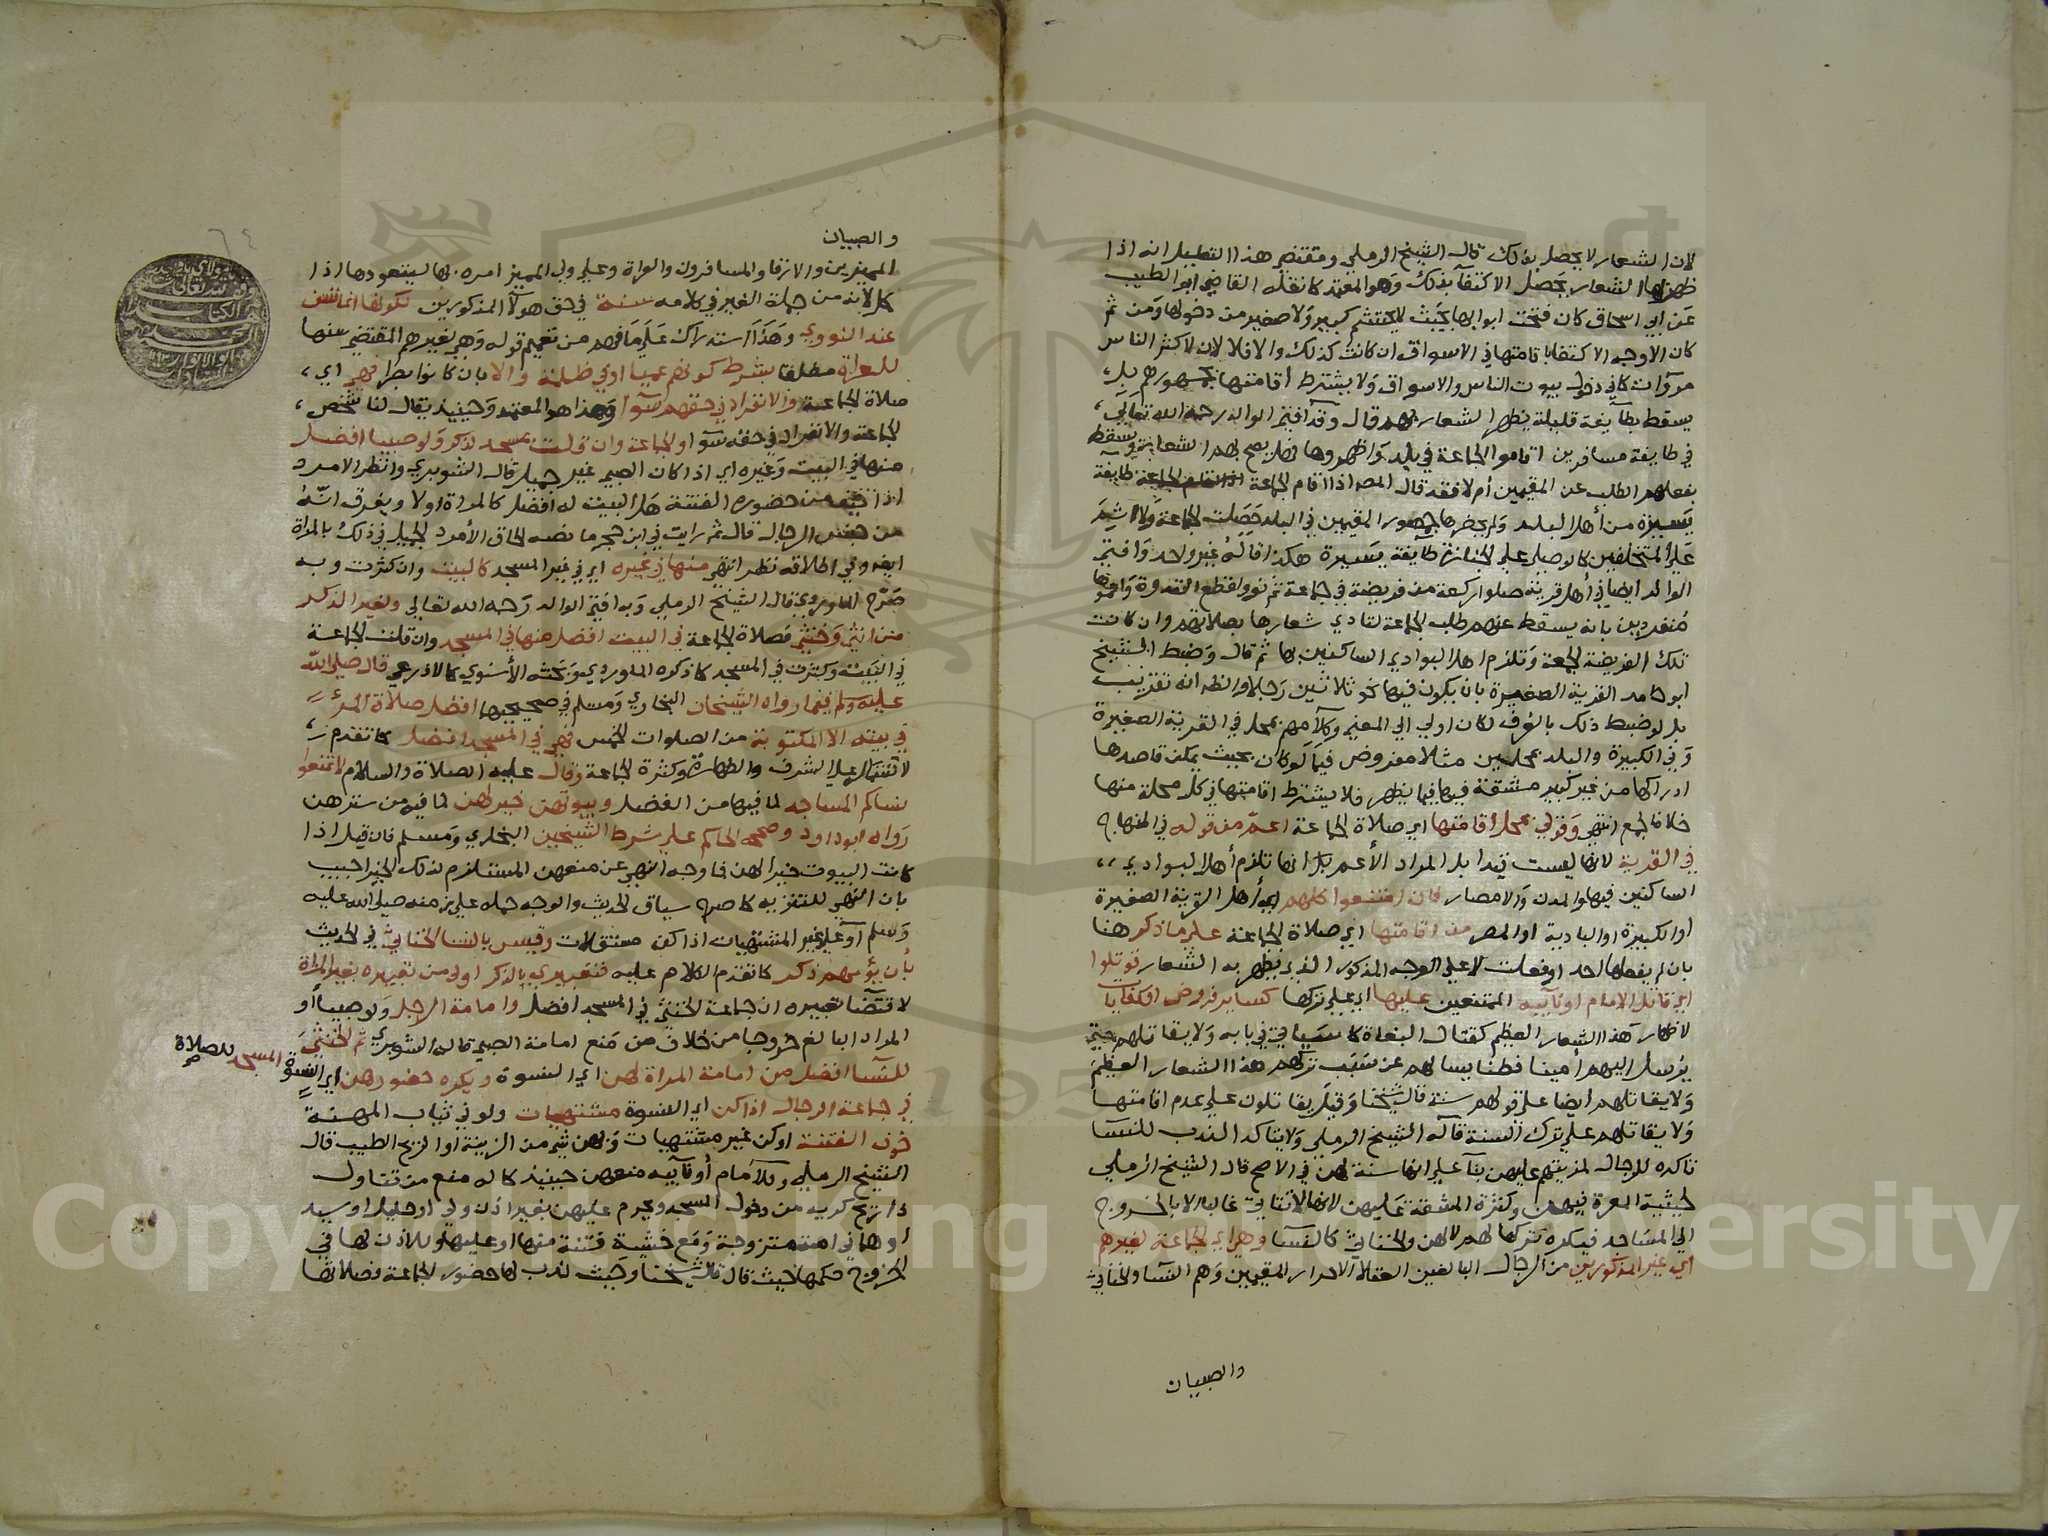 لان الشعار لا يحصل بذلك قال الشيخ الرملي ومقتضى هذا التعليل انه اذا
ظهر بها الشعار يحصل الاكتفآ بذلك وهو المعتمد كما نقله القاضي ابو الطيب
عن ابي اسحاق كان فتحت ابوابها بحيث لا يحتشم كبير ولا صغير من دخولها ومن ثم
كان الاوجه الاكتفا باقامتها في الاسواق ان كانت كذلك والا فلا لان لاكثر الناس
مروآت تابى دخول بيوت الناس والاسواق ولا يشترط اقامتها بجمهورهم بل
يسقط بطآيفة قليلة يظهر الشعار بهم قال وقد افتى الوالد رحمه الله تعالى
في طايفة مسافرين اقاموا الجماعة في بلد واظهروها فهل يحصل بهم الشعار ويسقط
بفعلهم الطلب عن المقيمين أم لا فقد قال المص اذا اقام الجماعة طايفة
يسيرة من أهل البلد ولم يحضرها جمهور المقيمين في البلد حصلت الجماعة ولا اثم
على المتخلفين كما لو صلى على الجنازة طايفة يسيرة هكذا قاله غير واحد وافتى
الوالد ايضا في أهل قرية صلوا ركعة من فريضة في جماعة ثم نووا قطع القدوة واتموها
منفردين بانه يسقط عنهم طلب الجماعة لتادي شعارها بصلاتهم وان كانت
تلك الفريضة الجمعة وتلزم اهل البوادي الساكنين بها ثم قال وضبط الشيخ
ابو حامد القرية الصغيرة بان يكون فيها نحو ثلاثين رجلا والظ انه تقريب
بل لو ضبط ذلك بالعرف لكان اولى الى المعنى وكلامهم بمحل في القرية الصغيرة
وفي الكبيرة والبلد بمحلين مثلا مفروض فيما لو كان بحيث يمكن قاصدها
ادراكها من غير كبير مشقة فيها فيما يظهر فلا يشترط اقامتها في كل محلة منها
خلافا لجمع انتهى وقولي بمحل اقامتها اي صلاة الجماعة اعم من قوله في المنهاج
في القرية لانها ليست قيدا بل المراد الأعم بل انها تلزم أهل البوادي
الساكنين فيها والمدن والامصار فان امتنعوا كلهم اي أهل القرية الصغيرة
او الكبيرة او البادية او المصر من اقامتها اي صلاة الجماعة على ما ذكر هنا
بان لم يفعلها احد او فعلت لا على الوجه المذكور الذي يظهر به الشعار قوتلوا
اي قاتل الامام او نآيبه الممتنعين عليها اي على تركها كساير فروض الكفايات
لاظهار هذا الشعار العظيم كقتال البغاة كما سياتي في بابه ولا يقاتلهم حتى
يرسل اليهم أمينا فطنا يسالهم عن سبب تركهم هذا الشعار العظيم
ولا يقاتلهم ايضا على قولهم سنة قال شيخنا وقيل يقاتلون على عدم اقامتها
ولا يقاتلهم على ترك السنة قآله الشيخ الرملي ولا يتاكد الندب للنسا
تاكده للرجال لمزيتهم عليهن بنآ على انها سنة لهن في الاصح قال الشيخ الرملي
لخشية المعرة فيهن وكثرة المشقة عليهن لانها لا تتاتى غالبا الا بالخروج
الى المساجد فيكره تركها لهم لا لهن والخناثى كالنسا وهي اي الجماعة لغيرهم
اي غير المذكورين من الرجال البالغين العقلا الاحرار المقيمين وهم النسا والخناثى
والصبيان
والصبيان
المميزين والارقا والمسافرون والعراة وعلى ولي المميز امره بها ليتعودها اذا
كملا لانه من جملة الغير في كلامه سنة في حق هولآ المذكورين لكونها انما تسن
عند النووي وهذا استدراك على ما فهم من تعميم قوله وهي لغيرهم المقتضي سنها
للعراة مطلقا بشرط كونهم عميا او في ظلمة والا بان كانوا بصرا فهي اي
صلاة الجماعة والانفراد في حقهم سوآ وهذا هو المعتمد وحينيذ يقال لنا شخص
الجماعة والانفراد في حقه سوآ والجماعة وان قلت بمسجد لذكر ولو صبيا افضل
منها في البيت وغيره اي اذا كان الصبي غير جميل قال الشوبري وانظر الامرد
اذا خيف من حضوره الفتنة هل البيت له افضل كالمراة او لا ويفرق انه
من جنس الرجال قال ثم رايت في ابن حجر ما نصه الحاق الأمرد الجميل في ذلك بالمراة
ايضا وفي اطلاقه نظر انتهى منها في غيره اي في غير المسجد كالبيت وان كثرت وبه
صرح الماوردي قال الشيخ الرملي وبه افتى الوالد رحمه الله تعالى ولغير الذكر
من انثى وخنثى فصلاة الجماعة في البيت افضل منها في المسجد وان قلت الجماعة
في البيت وكثرت في المسجد كما ذكره الماوردي وبحثه الأسنوي كالاذرعي قال صلى الله
عليه وسلم فيما رواه الشيخان البخاري ومسلم في صحيحيهما افضل صلاة المرء
في بيته الا المكتوبة من الصلوات الخمس فهي في المسجد افضل كما تقدم
لاشتماله على الشرف والطهارة وكثرة الجماعة وقال عليه الصلاة والسلام لا تمنعوا
نساكم المساجد لما فيها من الفضل وبيوتهن خير لهن لما فيه من سترهن
رواه ابو داود وصححه الحاكم على شرط الشيخين البخاري ومسلم فان قيل اذا
كانت البيوت خيرا لهن فما وجه النهي عن منعهن المستلزم لذلك الخير اجيب
بان النهي للتنزيه كما صرح سياق الحديث والوجه حمله على زمنه صلى الله عليه
وسلم او على غير المشتهيات اذا كن مستقلات وقيس بالنسا الخناثى في الحديث
بأن يؤمهم ذكر كما تقدم الكلام عليه فتعبيري بالذكر اولى من تعبيره بغير المراة
لاقتضا تعبيره ان جماعة الخنثى في المسجد افضل وامامة الرجل ولو صبيا أو
المراد البالغ خروجا من خلاف من منع امامة الصبي قاله الشوبري ثم الخنثى
للنسا افضل من امامة المراة لهن اي النسوة ويكره حضورهن اي النسوة المسجد للصلاة
في جماعة الرجال اذا كن اي النسوة مشتهيات ولو في ثياب المهنة
خوف الفتنة او كن غير مشتهيات ولهن شي من الزينة او الريح الطيب قال
الشيخ الرملي وللامام أو نآيبه منعهن حينيذ كما له منع من تناول
ذا ريح كريه من دخول المسجد ويحرم عليهن بغير اذن ولي او حليل او سيد
أو هما في امة متزوجة ومع خشية فتنة منها او عليها وللاذن لها في
الخروج حكمها حيث قال شيخنا وحيث ندب لها حضور الجماعة فصلاتها